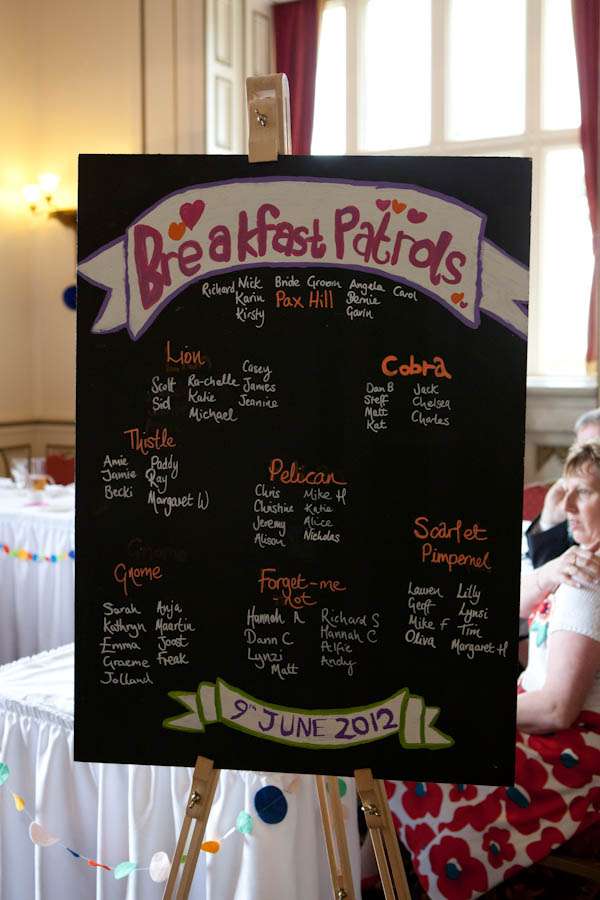 Breakfast Patrols
Richard Nick Bride Groom Angela Carol
Karin Pax Hill Bernie
Kirsty Gavin
Lion
Casey
Scott Ra-chelle James
Sid Katie Jeanine
Michael
Cobra
Dan B Jack
Steff Chelsea
Matt Charles
Kat
Thistle
Amie Paddy
Jamie Ray
Becki Margaret W
Pelican
Chris Mike H
Christine Katie
Jeremy Alice
Alison Nicholas
Scarlet
Pimpernel
Lauren Lilly
Geoff Lynsi
Mike F Tim
Oliva Margaret H
Gnome
Gnome
Sarah Anja
Kathryn Maartin
Emma Joost
Graeme Freak
Jolland
Forget-me
-not
Hannah R Richard S
Dann C Hannah C
Lynzi Alfie
Matt Andy
9th JUNE 2012